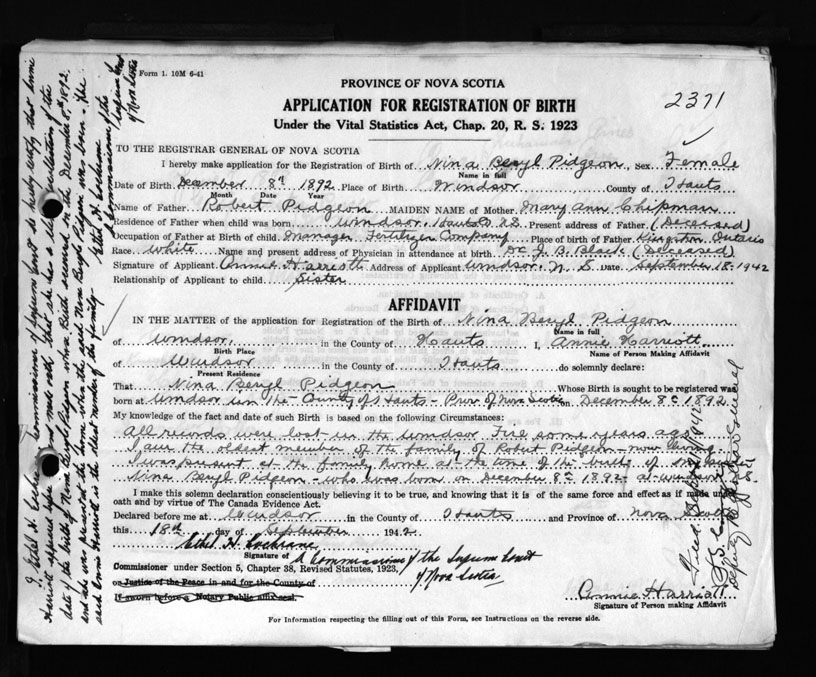 Form 1. 10M 6-41
2371
PROVINCE OF NOVA SCOTIA
APPLICATION FOR REGISTRATION OF BIRTH
Under the Vital Statistics Act, Chap. 20, R. S. 1923
TO THE REGISTRAR GENERAL OF NOVA SCOTIA
I hereby make application for the Registration of Birth of Nina Beryl Pidgeon, Sex Female
Name in full
Date of Birth December 8th 1892 Place of Birth Windsor County of Hants
Month Date Year
Name of Father Robert Pidgeon MAIDEN NAME of Mother Mary Ann Chipman
Residence of Father when child was born Windsor, Hants Co N.S. Present address of Father (Deceased)
Occupation of Father at Birth of child Manager Fertilizer Company Place of birth of Father Kingston Ontario
Race White Name and present address of Physician in attendance at birth Dr J. B. Black (Deceased)
Signature of Applicant Annie Harriott Address of Applicant Windsor, N. S. Date September 18, 1942
Relationship of Applicant to child Sister
AFFIDAVIT
IN THE MATTER of the application for Registration of the Birth of Nina Beryl Pidgeon
Name in full
of Windsor, in the County of Hants I, Annie Harriott
Birth Place Name of Person Making Affidavit
of Windsor in the County of Hants do solemnly declare:
Present Residence
That Nina Beryl Pidgeon Whose Birth is sought to be registered was
born at Windsor in the County of Hants - Prov of Nova Scotia on December 8th 1892
My knowledge of the fact and date of such Birth is based on the following Circumstances:
All records were lost in the Windsor Fire some years ago.
I am the oldest member of the family of Robert Pidgeon - now living.
I was present at the family home at the time of the birth of
Nina Beryl Pidgeon - who was born on December 8th 1892 - at Windsor
I make this solemn declaration conscientiously believing it to be true, and knowing that it is of the same force and effect as if made under
oath and by virtue of The Canada Evidence Act.
Declared before me at Windsor in the County of Hants and Province of Nova Scotia
this 18th day of September 1942
Ethel H. Cochrane
Signature of A Commissioner of the Supreme Court
of Nova Scotia
Commissioner under Section 5, Chapter 38, Revised Statutes, 1923,
or Justice of the Peace in and for the County of
If sworn before a Notary Public affix seal.
Annie Harriott
Signature of Person making Affidavit
For Information respecting the filling out of this Form, see Instructions on the reverse side.
I, Ethel H. Cochrane Commissioner of Supreme Court do hereby certify that Annie
Harriott appeared before me and made oath that she has a distinct recollection of the
date of the birth of Nina Beryl Pidgeon whose Birth occurred on the December 8th 1892
and she was present at the home when the said Nina Beryl Pidgeon was born - the
said Annie Harriott is the oldest member of the family. Ethel H. Cochrane
A Commissioner of the
Supreme Court
of Nova Scotia
Deputy Registrar General